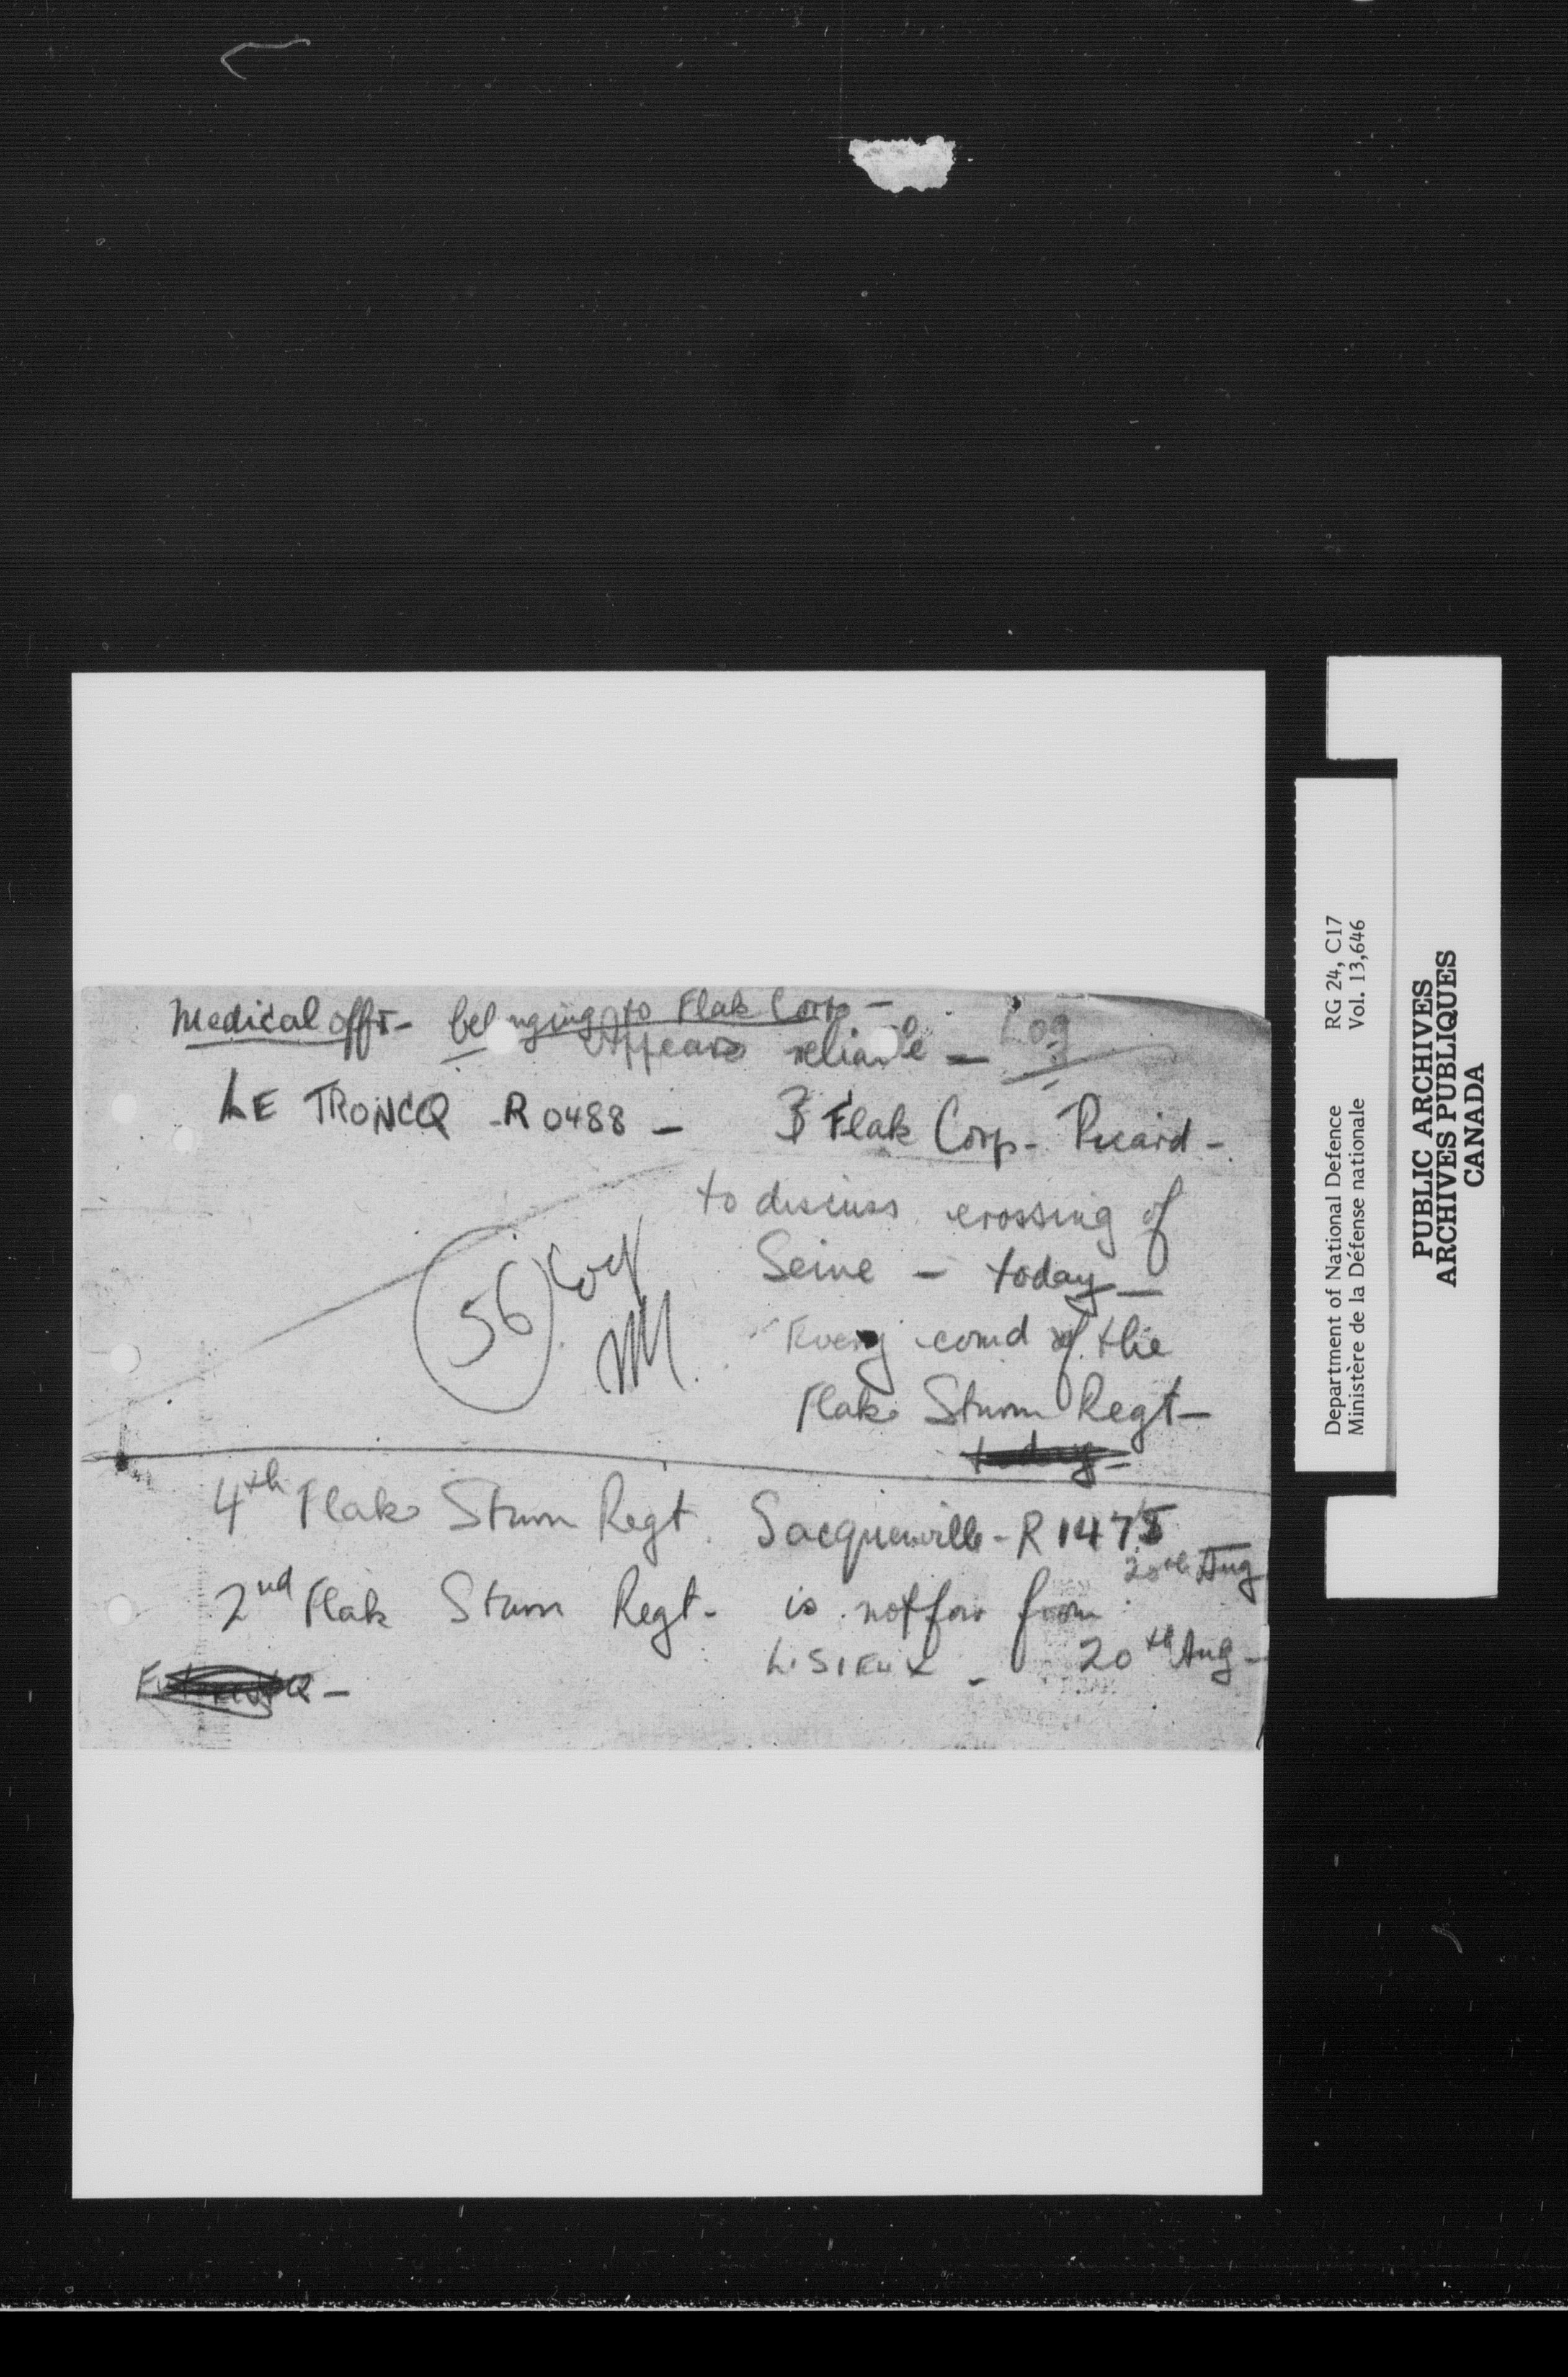 Medical offr- belonging to Flak Corp -
Appears reliable - Log
LE TRONCQ - R 0488 - 3 Flak Corp -
to discuss crossing of
Seine - today -
56 Log
Every comd of the
Flak Sturm Regt -
today -
4th Flak Sturm Regt. Sacquenville - R 1475
20th Aug
2nd Flak Sturm Regt - is not far from
LISIEUX - 20th Aug -
Department of National Defence RG 24, C17
Ministère de la Défense nationale Vol. 13,646
PUBLIC ARCHIVES
ARCHIVES PUBLIQUES
CANADA